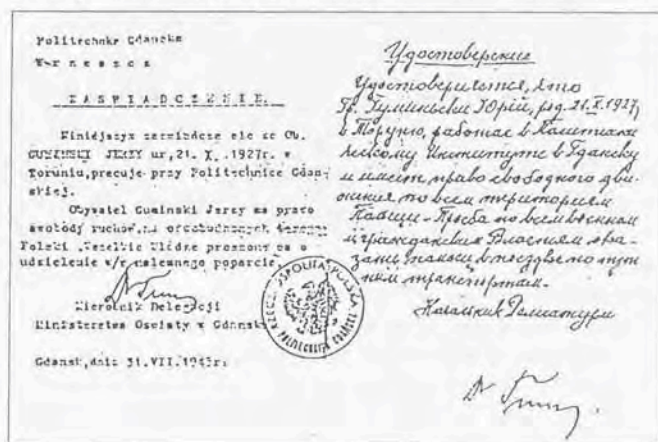 Politechnka Gdańska
W r z e s z c z
Z A Ś W I A D C Z E N I E.
Niniejszym zaświadcza się że Ob.
GUMIŃSKI JERZY ur, 21. X. 1927r. w
Toruniu, pracuje przy Politechnice Gdań-
skiej.
Obywatel Gumiński Jerzy ma prawo
swobody ruchów na
Polski. Wszelkie Władze proszone są o
udzielenie w/w należnego poparcia.
Kierownik Delegacji
Ministerstwa Oświaty w Gdańsku
Gdańsk, dnia 31.VII.1945r.
RZECZPOSPOLITA POLSKA
Удостоверение
Удостоверяется, что
Гр. Гуминьски Юрий, род. 21.X.1927,
в Торуню, работает в
Институте в Гданску
и имеет право свободного дви-
жения по всем территориям
Польши. Просьба по всем военным
и гражданским Властям
помощь в поездке по
транспортам.
Начальник